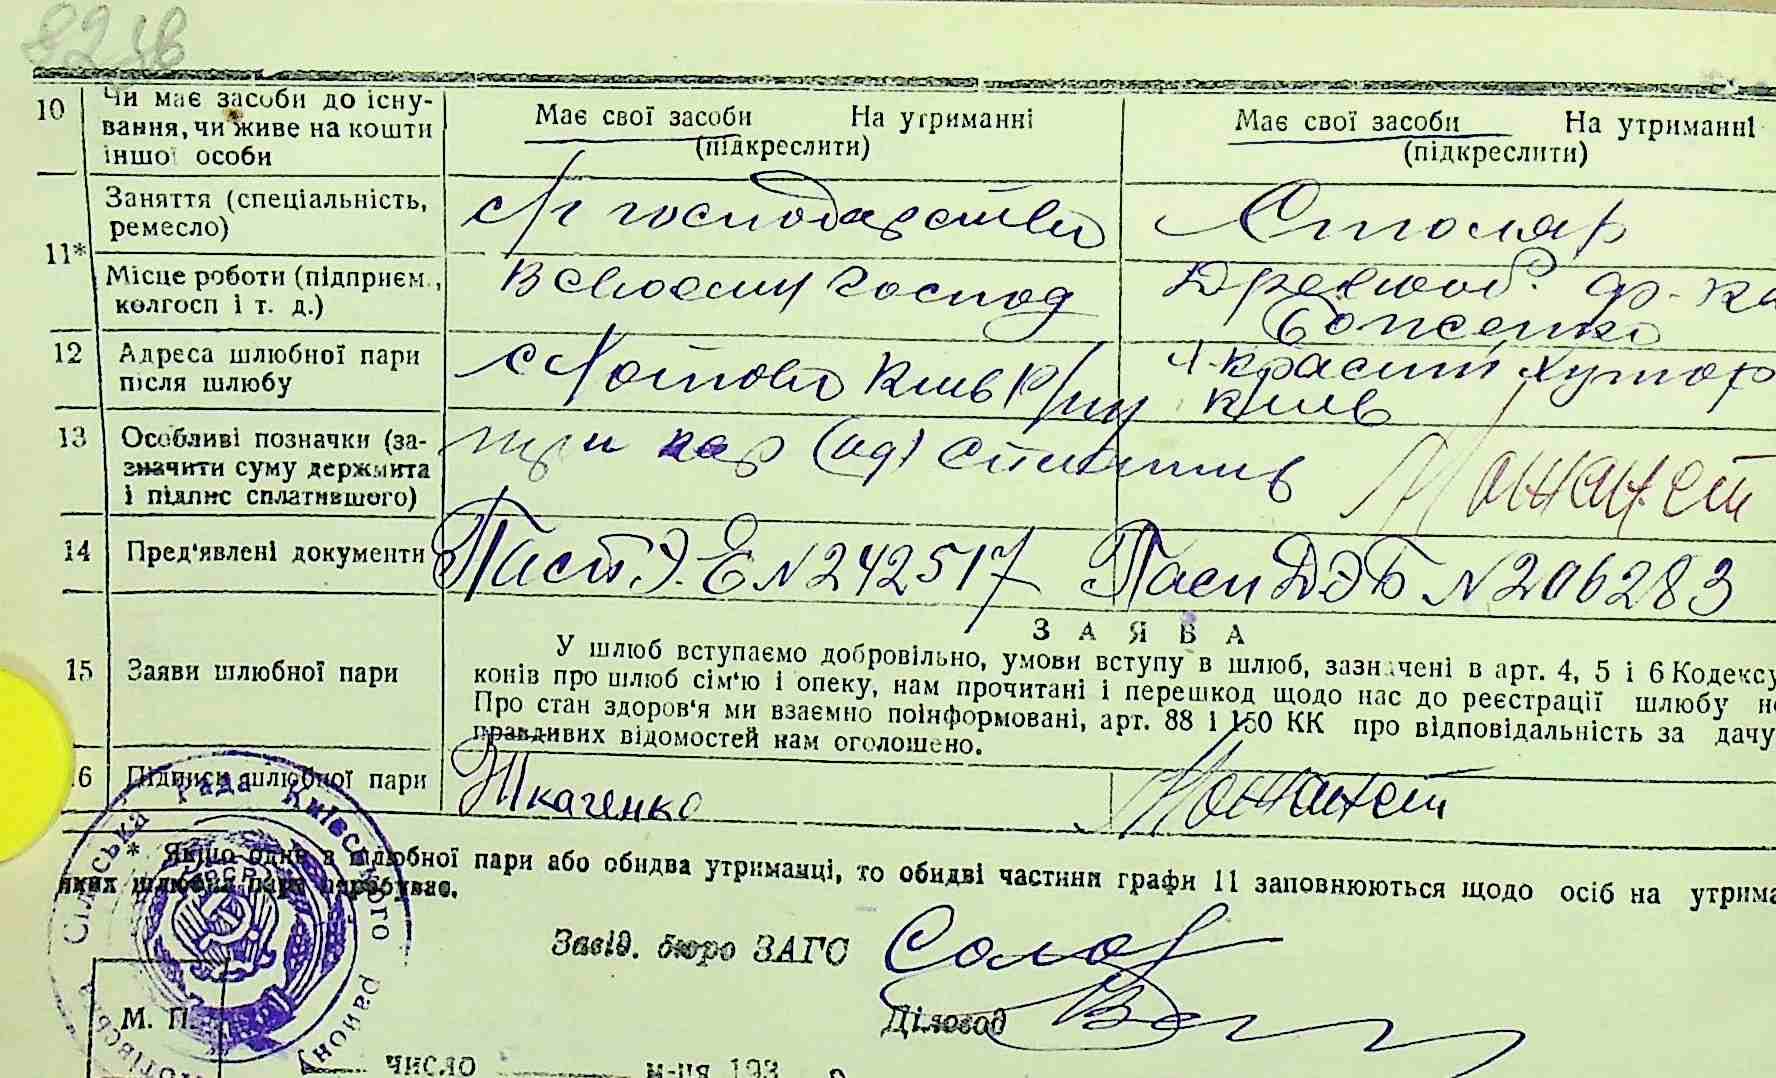 10 Чи має засоби до існу-
вання, чи живе на кошти
іншої особи
Має свої засоби На утриманні
(підкреслити)
Має свої засоби На утриманні
(підкреслити)
11* Заняття (спеціальність,
ремесло)
с/г господарство
Столяр
Місце роботи (підприєм.,
колгосп і т. д.)
В своєму господ
ф-ка
Боженко
12 Адреса шлюбної пари
після шлюбу
Київ
Хутор
Київ
13 Особливі позначки (за-
значити суму держмита
і підпис сплатившого)
14 Пред'явлені документи
Пасп Э. Е N 242517
Пасп ДЭБ N 206283
15 Заяви шлюбної пари
ЗАЯВА
У шлюб вступаємо добровільно, умови вступу в шлюб, зазначені в арт. 4, 5 і 6 Кодексу
конів про шлюб сім'ю і опеку, нам прочитані і перешкод щодо нас до реєстрації шлюбу
Про стан здоров'я ми взаємно поінформовані, арт. 88 і 150 КК про відповідальність за дачу
правдивих відомостей нам оголошено.
16 Підписи шлюбної пари
Ткаченко
* Якщо одне з шлюбної пари або обидва утриманці, то обидві частини графи 11 заповнюються щодо осіб на утрима
яких шлюбна пара перебуває.
Сільська Рада Київського району
Завід. бюро ЗАГС
Діловод
М. П.
число м-ця 193